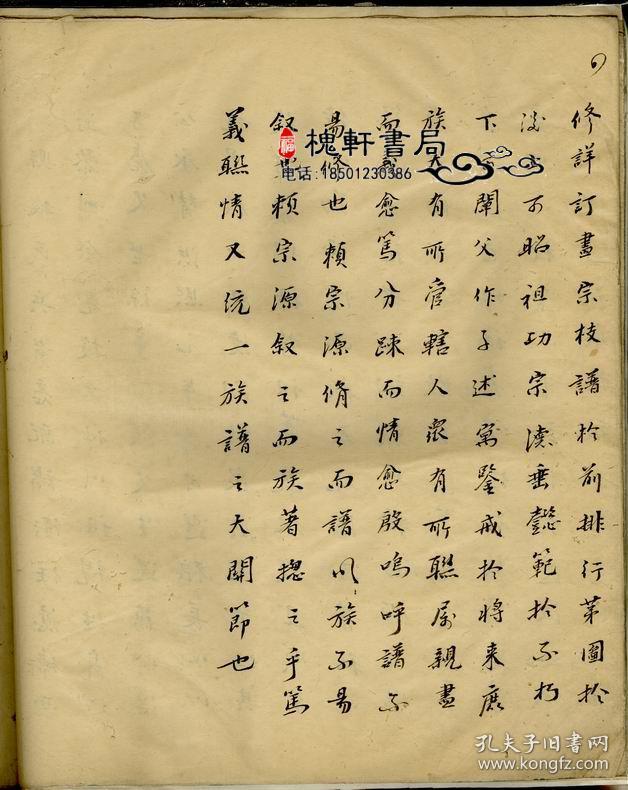 修詳訂畫宗枝譜於前排行第圖於
後 可昭祖功宗瀆垂懿範於不朽
下 闡父作子述寓鑒戒於將來庶
族大有所管轄人眾有所聯屬親盡
而義愈篤分疎而情愈殷嗚呼譜不
易修也賴宗源脩之而譜以族不易
叙 賴宗源叙之而族著揔之乎篤
義聯情又統一族譜之大關節也
槐軒書局
福
电话:18501230386
孔夫子旧书网
www.kongfz.com